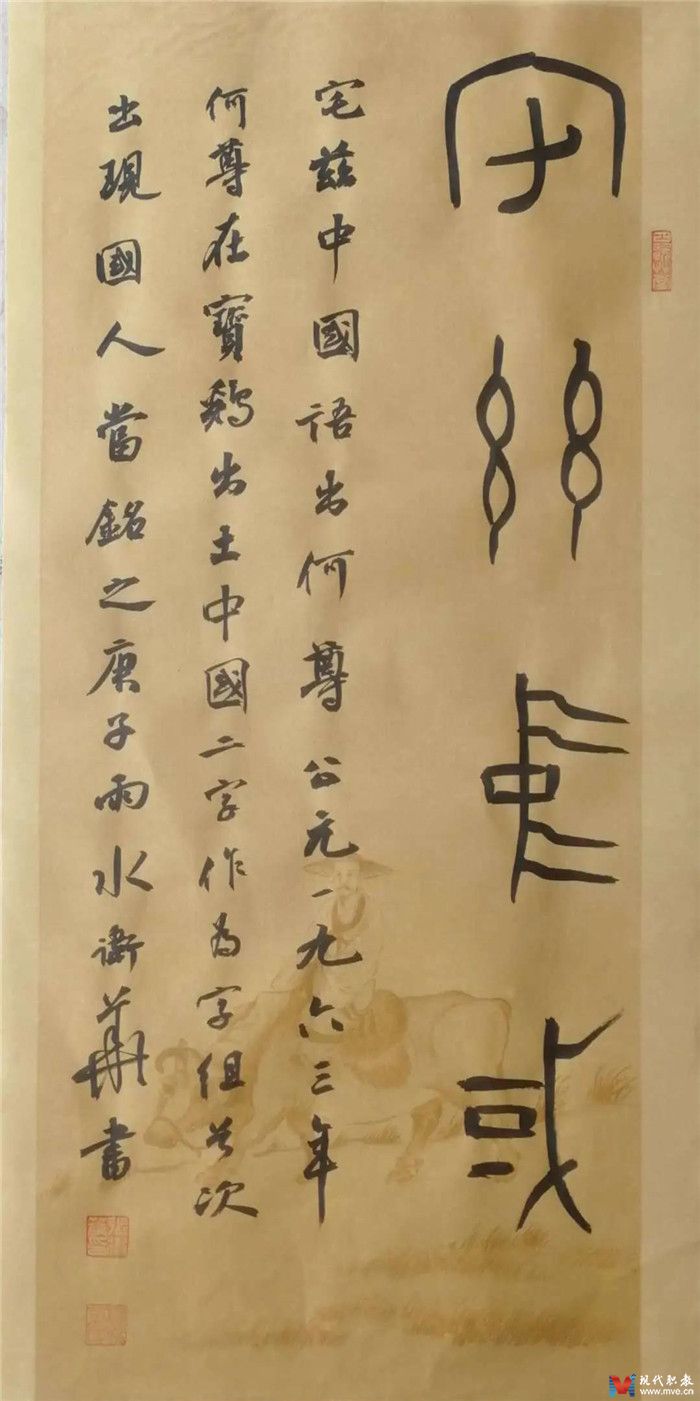 宅兹中或
宅兹中國語出何尊公元一九六三年
何尊在寶鷄出土中國二字作為字組首次
出現國人當銘之庚子雨水衛華書
现代职教
www.mve.cn